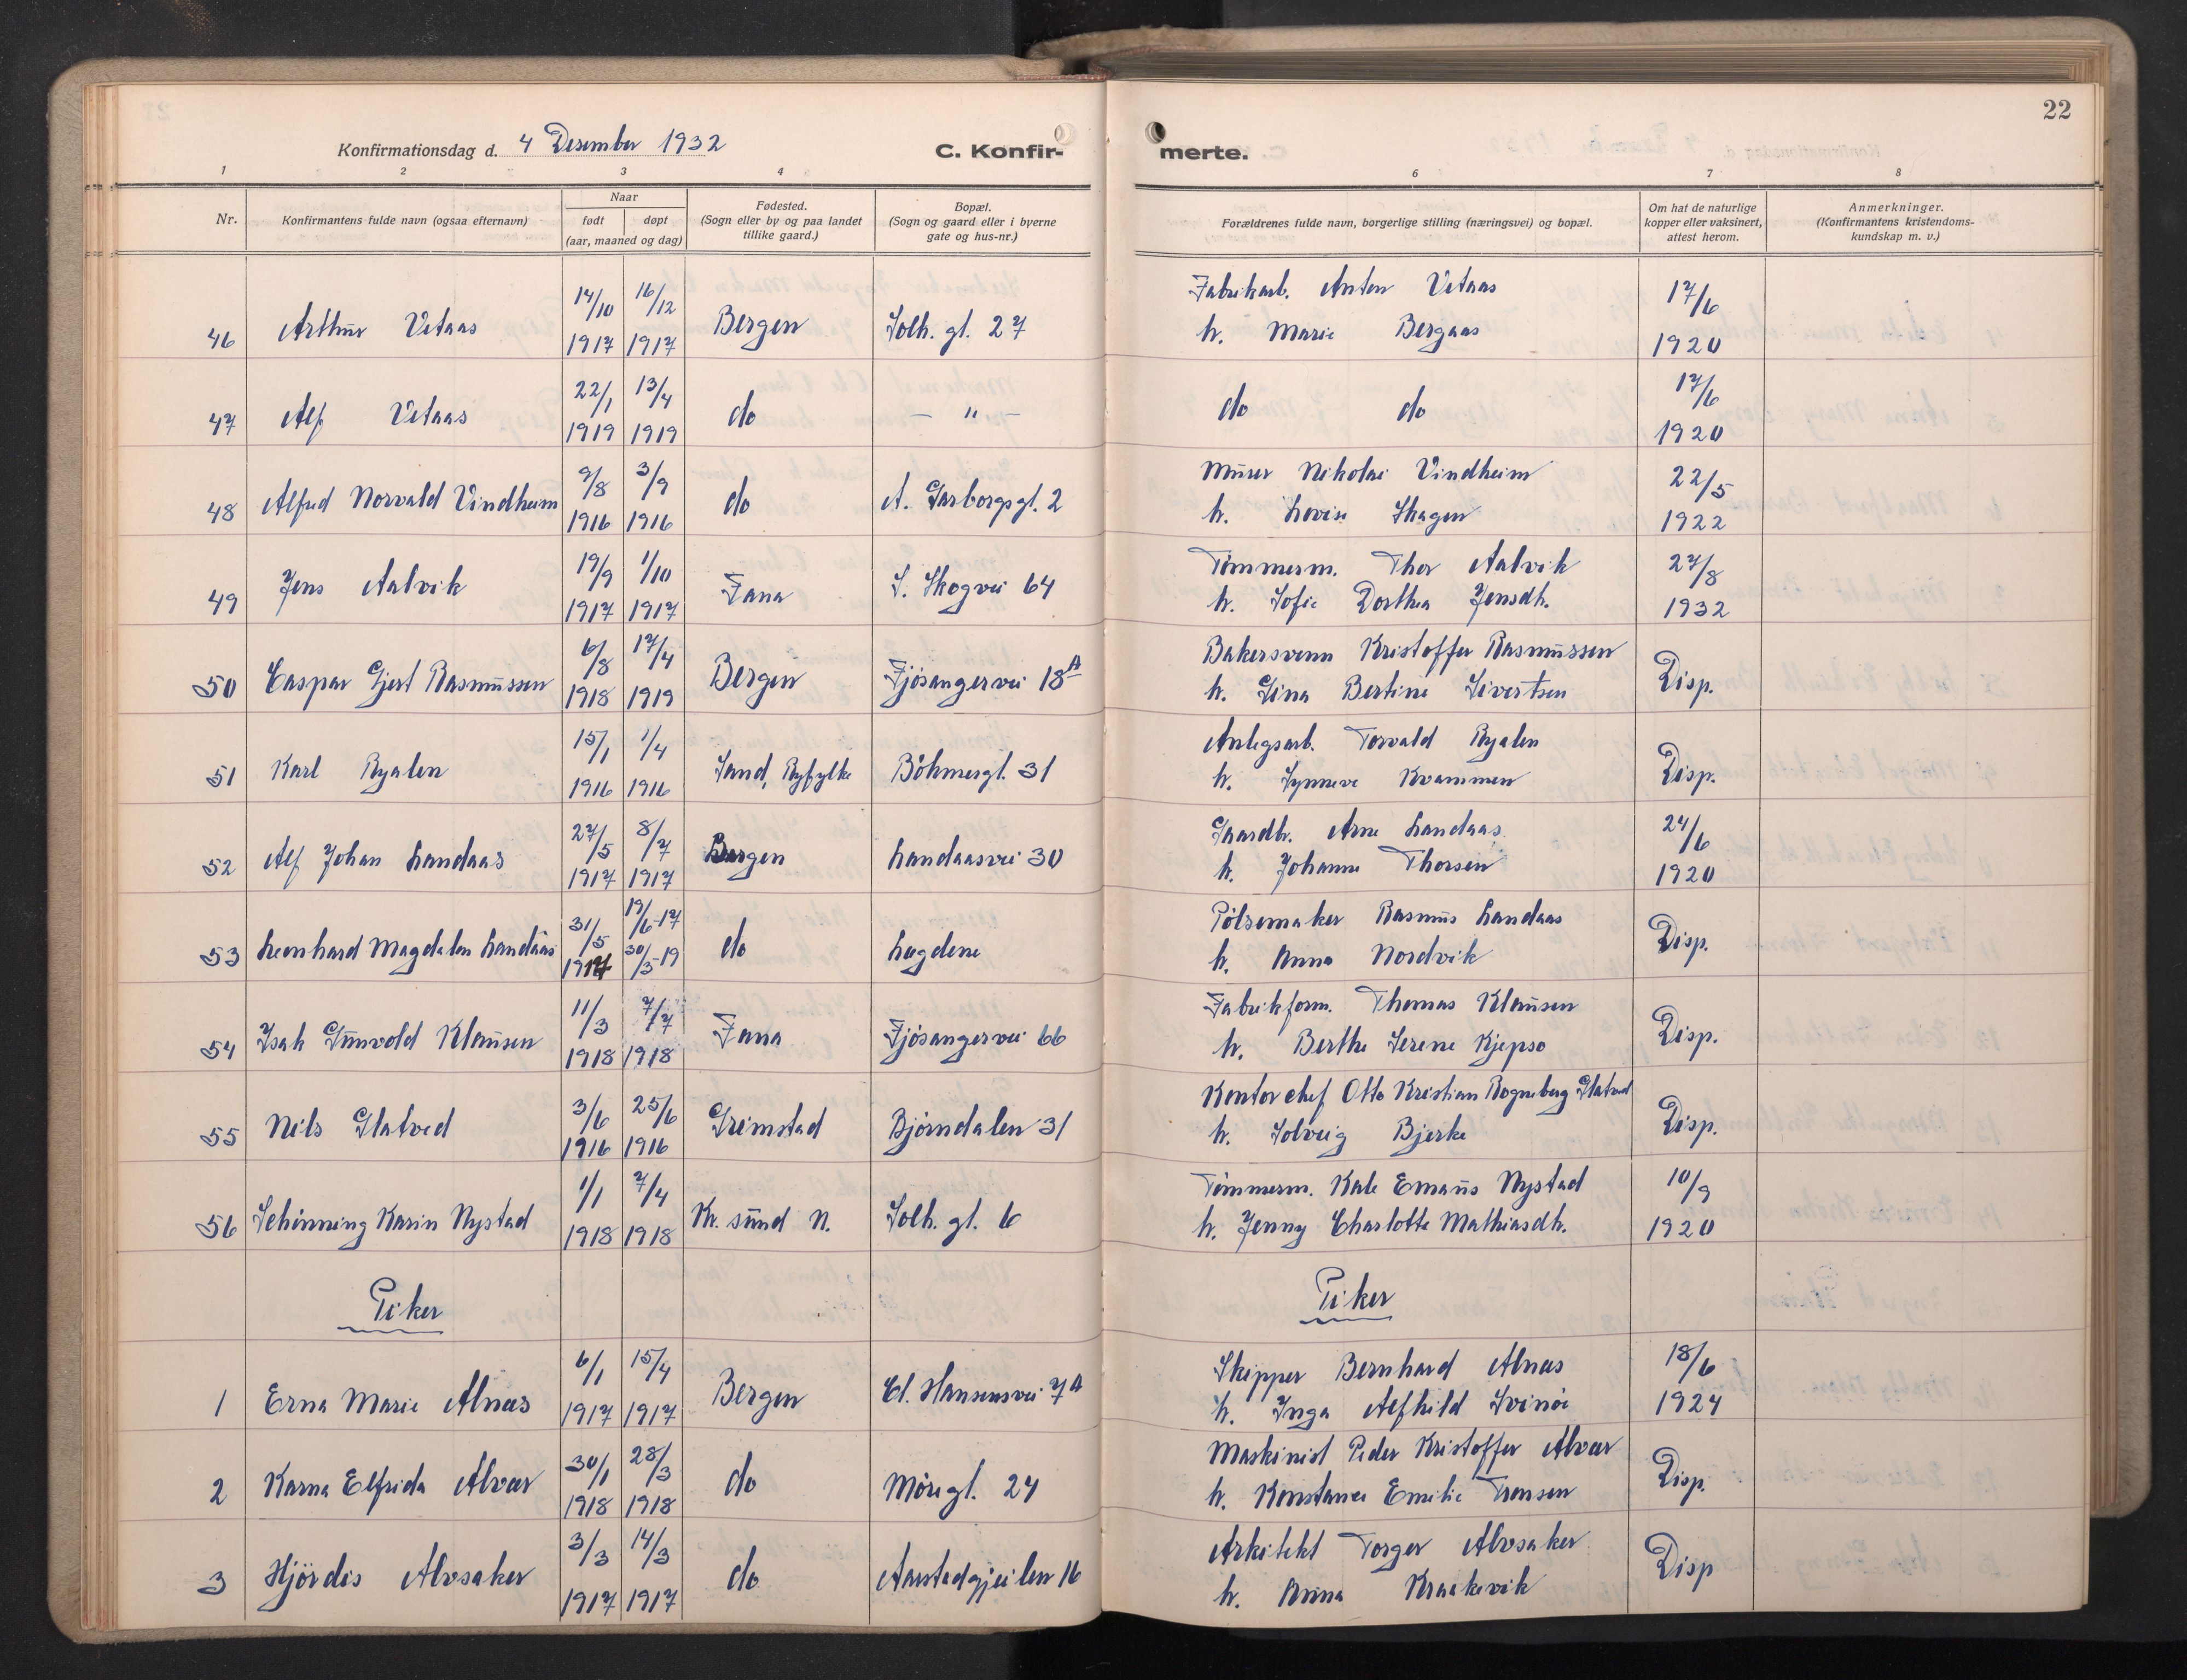 22
Konfirmationsdag d. 4 Desember 1932
C. Konfir-
merte.
1 2 3 4 5 6 7 8
Nr.
Konfirmantens fulde navn (ogsaa efternavn)
Naar
født døpt
(aar, maaned og dag)
Fødested.
(Sogn eller by og paa landet
tillike gaard.)
Bopæl.
(Sogn og gaard eller i byerne
gate og hus-nr.)
Forældrenes fulde navn, borgerlige stilling (næringsvei) og bopæl.
Om hat de naturlige
kopper eller vaksinert,
attest herom.
Anmerkninger.
(Konfirmantens kristendoms-
kundskap m. v.)
14/10 16/12 Fabrikarb. Anton Vetaas 17/6
46 Arthur Vetaas 1917 1917 Bergen Solh. gt. 27 h. Marie Bergaas 1920
22/1 13/4 17/6
47 Alf Vetaas 1919 1919 do — " — do do 1920
9/8 3/9 Murer Nikolai Vindheim 22/5
48 Alfred Norvald Vindheim 1916 1916 do A. Garborgsgt. 2 h. Lovise Skagen 1922
19/9 1/10 Tømmerm. Thor Aalvik 27/8
49 Jens Aalvik 1917 1917 Fana S. Skogvei 64 h. Sofie Dorthea Jensdh. 1932
6/8 17/4 Bakersvenn Kristoffer Rasmussen
50 Caspar Gjert Rasmussen 1918 1919 Bergen Fjøsangervei 18A h. Gina Bertine Sivertsen Disp.
15/1 1/4 Anlegsarb. Torvald Ryalen
51 Karl Ryalen 1916 1916 Sand, Ryfylke Böhmergt. 31 h. Synneve Kvammen Disp.
27/5 8/7 Gaardb. Arne Landaas 24/6
52 Alf Johan Landaas 1917 1917 Bergen Landaasvei 30 h. Johanne Thorsen 1920
31/5 19/6-17 Pølsemaker Rasmus Landaas
53 Leonhard Magdalon Landaas 1917 30/5-19 do Lægdene h. Anna Nordvik Disp.
11/3 7/7 Fabrikform. Thomas Klausen
54 Isak Gunvold Klausen 1918 1918 Fana Fjøsangervei 66 h. Berthe Serene Kjepso Disp.
3/6 25/6 Kontorchef Otto Kristian Rogneberg Slatved
55 Nils Slatved 1916 1916 Grimstad Bjørndalen 31 h. Solveig Bjerke Disp.
1/1 7/4 Tømmerm. Kale Emaus Nystad 10/9
56 Schönning Karin Nystad 1918 1918 Kr. sund N. Solh. gt. 6 h. Jenny Charlotte Mathiasdh. 1920
Piker Piker
6/1 15/4 Skipper Bernhard Alnæs 18/6
1 Erna Marie Alnæs 1917 1917 Bergen Cl. Hansensvei 7A h. Inga Alfhild Svinöi 1924
30/1 28/3 Maskinist Peder Kristoffer Alvær
2 Karna Elfrida Alvær 1918 1918 do Möregt. 24 h. Konstance Emilie Tronsen Disp.
3/3 14/3 Arkitekt Torger Alvsaker
3 Hjördis Alvsaker 1917 1917 do Aarstadgjeilen 16 h. Anna Kraakevik Disp